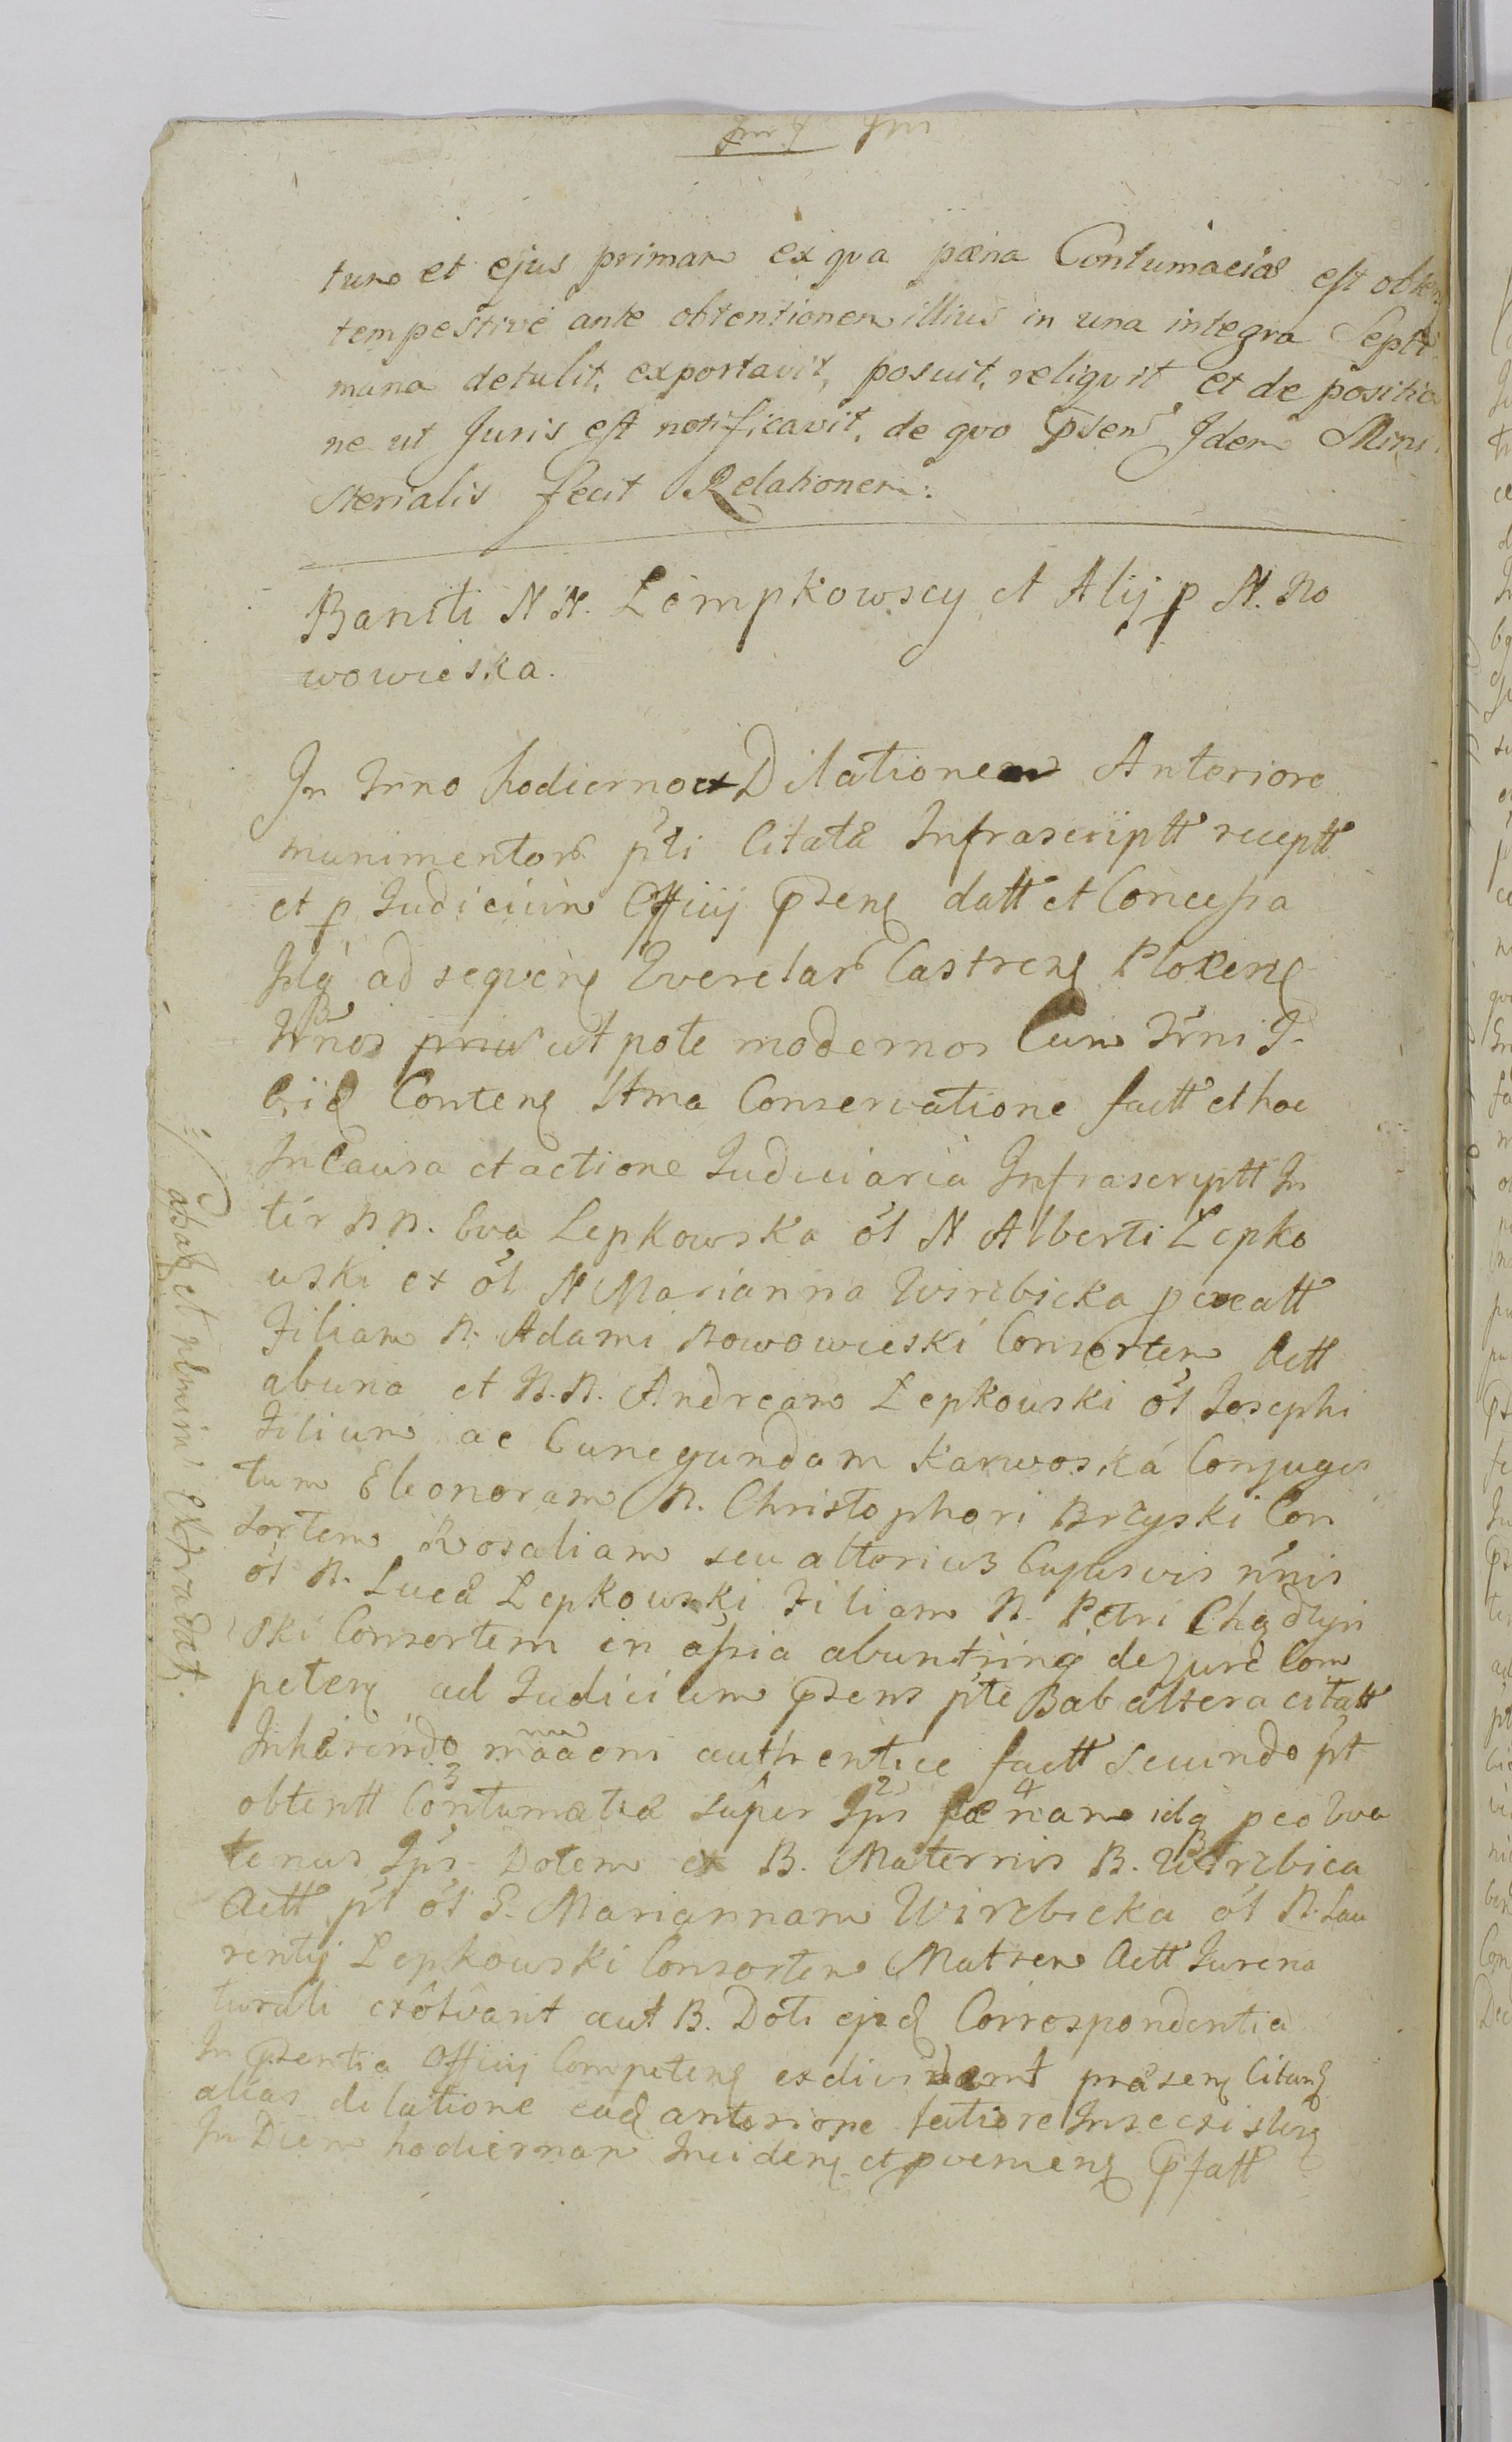 tum et ejus primam ex qva pæna Contumaciæ est obten
tempestive ante obtentionem illius in una integra Septi
mana detulit, exportavit, posuit, reliqvit, et de positio
ne ut Juris est notificavit, de qvo p̃sens Idem Mini
sterialis fecit Relationem:
Baniti N N. Lempkowscy et Alij p N. No
wowieska.
In Trno hodierno ex Dilatione Anteriore
munimentor pti Citatæ Infrascriptt receptt
et p Judicium Officij p̃sens datt et Concessa
Idq ad seqvens Qverelar Castrens Plocens
Trnos ut pote modernos Cum Trni
Contens Conservatione factt et hoc
In Causa et actione Judiciaria Infrascriptt In
ter N N. Eva Lepkowska ol N Alberti Lepko
wski ex ol N Marianna Wirzbicka pcreatt
Filiam N. Adami Nowowieski Consortem Actt
ab una et N. N. Andream Lepkowski ol Josephi
Filium ac Cunegundam Karwoska Conjuges
tum Eleonoram N. Christophori Brzyski Con
sortem Rosaliam seu alterius Cujusvis nnis
ol N. Lucæ Lepkowski Filiam N. Petri Chądzyn
ski Consortem in assia abuntring de jure Com
petens ad Judicium p̃sens pte ab altera citatt
Inhærendo authentice factt secundo pt
obtentt 3 Contumatiæ super 2 Ips pæ 4 nam idq peo Eva
tenus Ips Dotem ex B. Maternis B. Wirzbica
Actt pt ol G. Mariannam Wirzbicka ol N. Lau
rentij Lepkowski Consortem Matrem Actt Jure na
turali aut B. Doti ejsd Correspondentia
In p̃sentia Officij Competens exdividant præsens Citans
alias dilatione ead anteriore Inse existens
In Diem hodiernam Incidens et pveniens p̃fatt
adsalt et extradat.